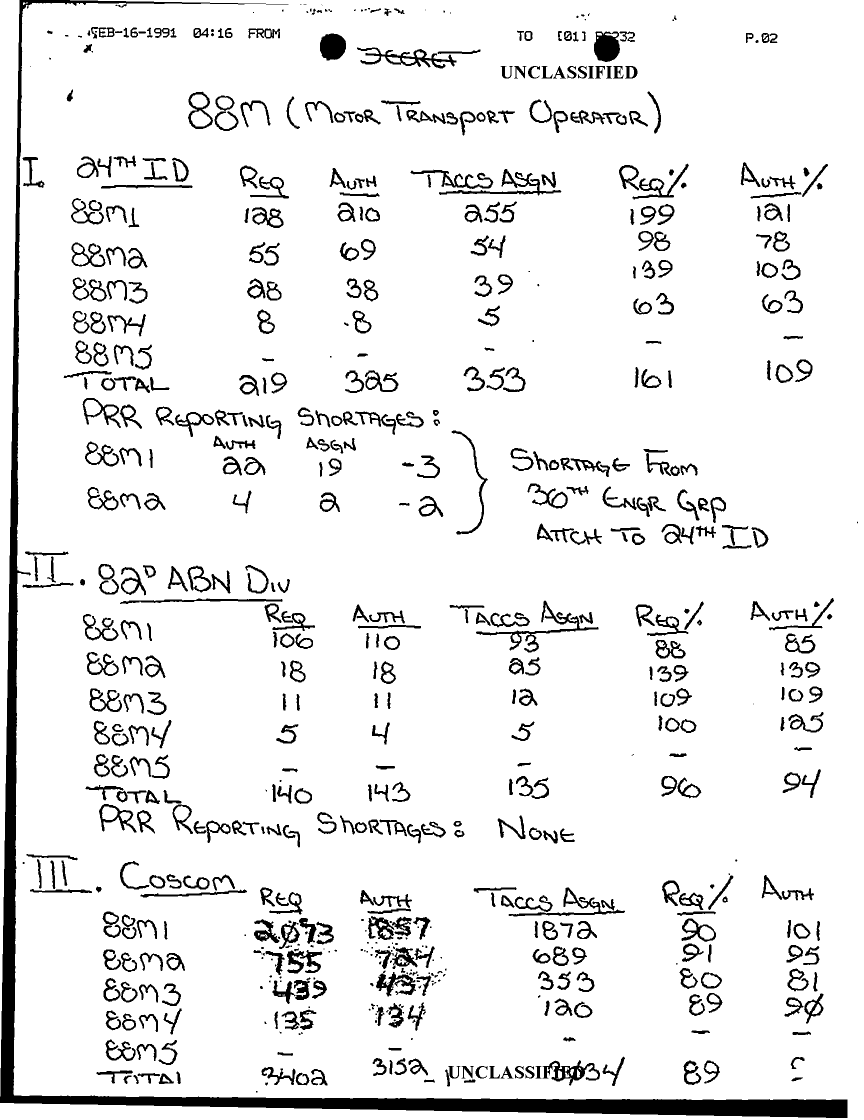 FEB-16-1991 04:16 FROM TO [01] P.02
SECRET
UNCLASSIFIED
88M (MOTOR TRANSPORT OPERATOR)
I. 24TH ID REQ AUTH TACCS ASGN REQ% AUTH%
88M1 128 210 255 199 121
88M2 55 69 54 98 78
88M3 28 38 39 139 103
88M4 8 8 5 63 63
88M5 - - - - -
TOTAL 219 325 353 161 109
PRR REPORTING SHORTAGES:
AUTH ASGN
88M1 22 19 -3
88M2 4 2 -2
SHORTAGE FROM
36TH ENGR GRP
ATTCH TO 24TH ID
II. 82D ABN DIV
REQ AUTH TACCS ASGN REQ% AUTH%
88M1 106 110 93 88 85
88M2 18 18 25 139 139
88M3 11 11 12 109 109
88M4 5 4 5 100 125
88M5 - - - - -
TOTAL 140 143 135 96 94
PRR REPORTING SHORTAGES: NONE
III. COSCOM
REQ AUTH TACCS ASGN REQ% AUTH
88M1 2073 1857 1872 90 101
88M2 755 724 689 91 95
88M3 439 437 353 80 81
88M4 135 134 120 89 90
88M5 - - - - -
TOTAL 3402 3152 3034 89
UNCLASSIFIED